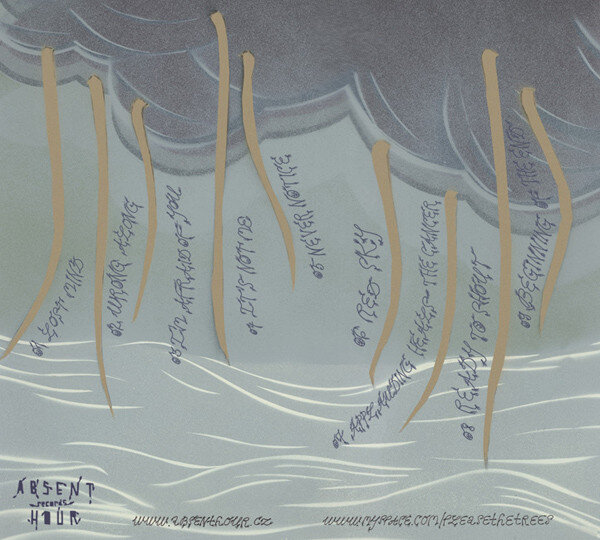 01 LOST MIND
02 WRONG ALONG
03 I'M AFRAID OF YOU
04 IT'S NOT
05 NEVER NOTICE
06 RED SKY
07 APPLAUDING HEALS THE CANCER
08 READY TO SHOUT
09 BEGINNING OF THE END
ABSENT
records
HOUR
www.absenthour.cz
www.myspace.com/pleasethetrees